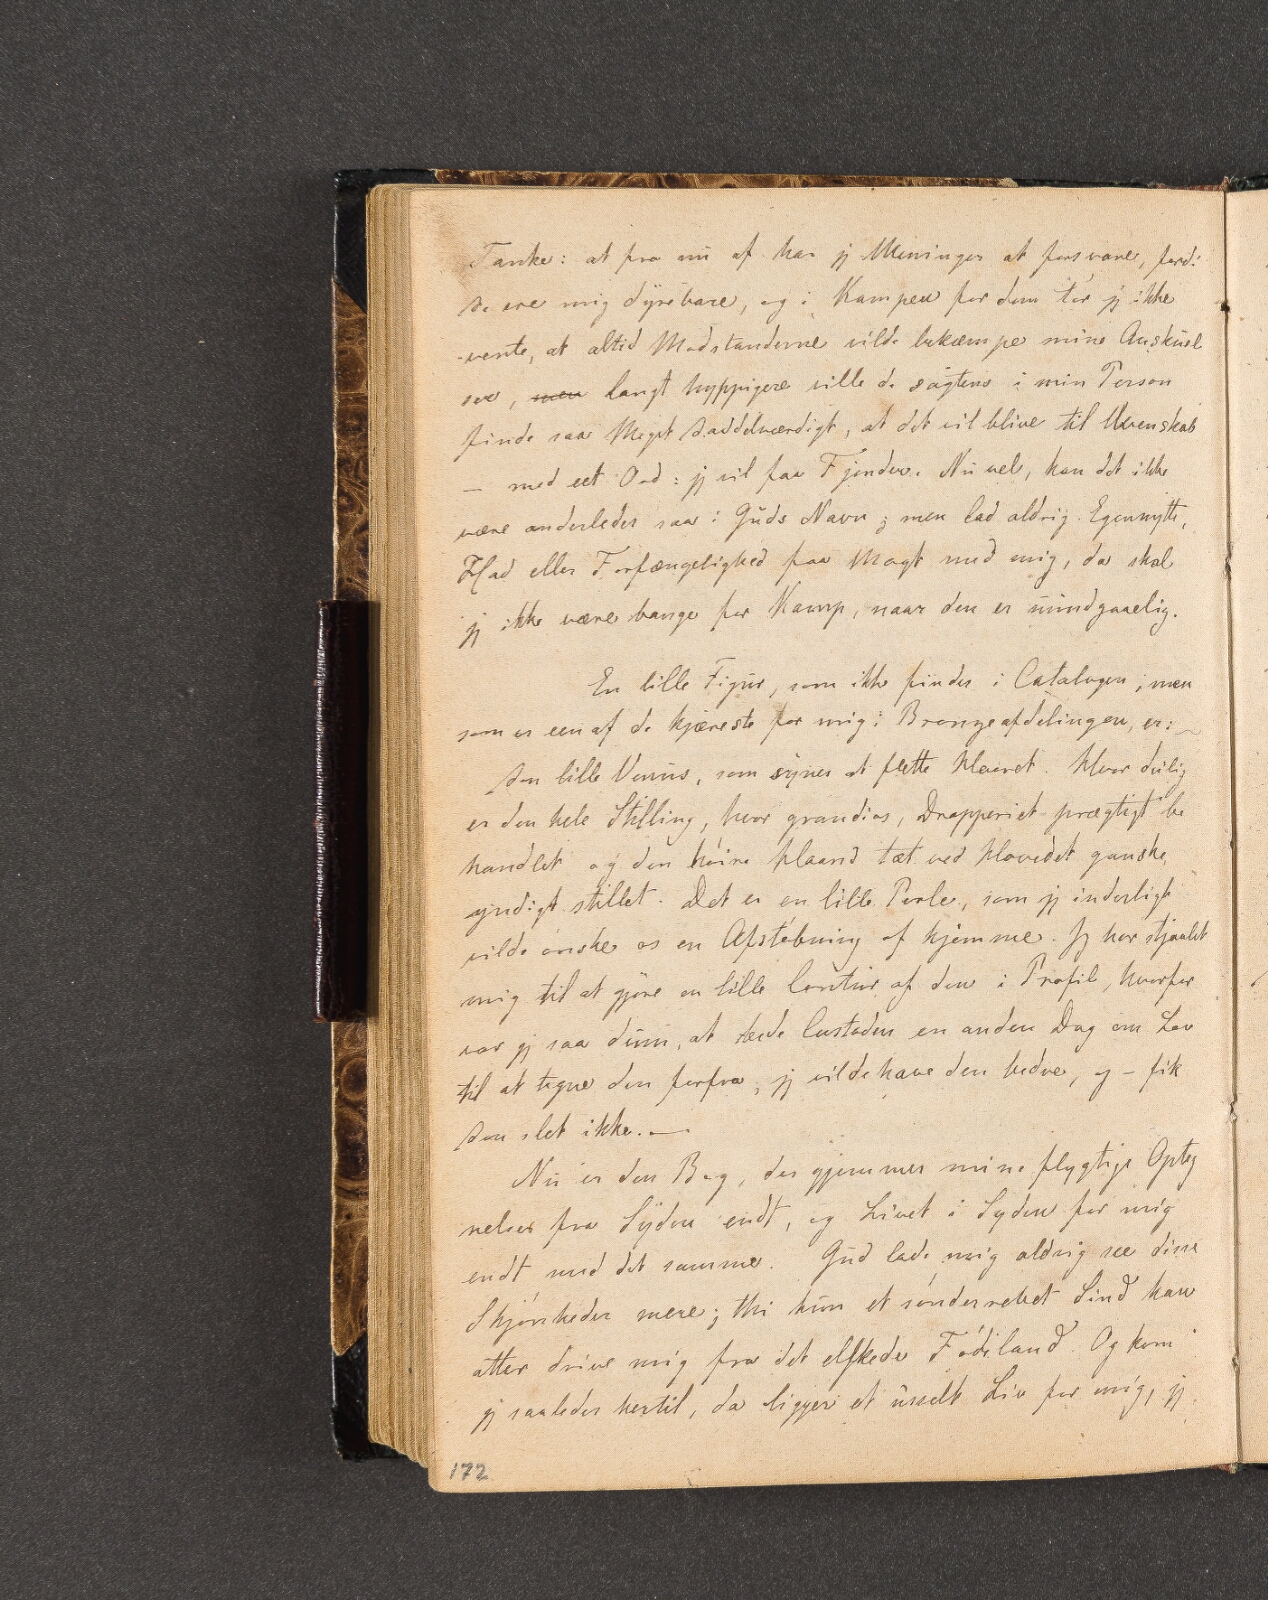 Tanke: at fra nu af har jeg Meninger at forsvare, fordi
de ere mig dyrebare, og i Kampen for dem tør jeg ikke
vente, at altid Modstanderne vilde bekæmpe mine Anskuel
ser, men langt hyppigere ville de sagtens i min Person
finde saa Meget daddelværdigt, at det vil blive til Uvenskab
— med eet Ord: jeg vil faa Fjender. Nu vel, kan det ikke
være anderledes saa i Guds Navn; men lad aldrig Egennytte,
Had eller Forfængelighed faa Magt med mig, da skal
jeg ikke være bange for Kamp, naar den er uundgaaelig.
En lille Figur, som ikke findes i Catalogen, men
som er een af de kjæreste for mig i Bronzeafdelingen, er:
den lille Venus, som synes at flette Haaret. Hvor deilig
er den hele Stilling, hvor grandios, Drapperiet prægtigt be
handlet og den høire Haand tæt ved Hovedet ganske
yndigt stillet. Det er en lille Perle, som jeg inderligt
vilde ønske os en Afstøbning af hjemme. Jeg har stjaalet
mig til at gjøre en lille Contur af den i Profil, hvorfor
var jeg saa dum, at bede Custoden en anden Dag om Lov
til at tegne den forfra, jeg vilde have den bedre, og — fik
den slet ikke. —
Nu er den Bog, der gjemmer mine flygtige Opteg
nelser fra Syden endt, og Livet i Syden for mig
endt med det samme. Gud lade mig aldrig see disse
Skjønheder mere; thi kun et sønderrevet Sind kan
atter drive mig fra det elskede Fødeland. Og kom
jeg saaledes hertil, da ligger et usselt Liv for mig, jeg
172